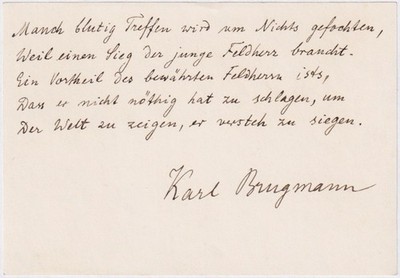 Manch blutig Treffen wird um Nichts gefochten,
Weil einen Sieg der junge Feldherr braucht.
Ein Vortheil des bewährten Feldherrn ists,
Dass er nicht nöthig hat zu schlagen, um
Der Welt zu zeigen, er versteh zu siegen.
Karl Brugmann